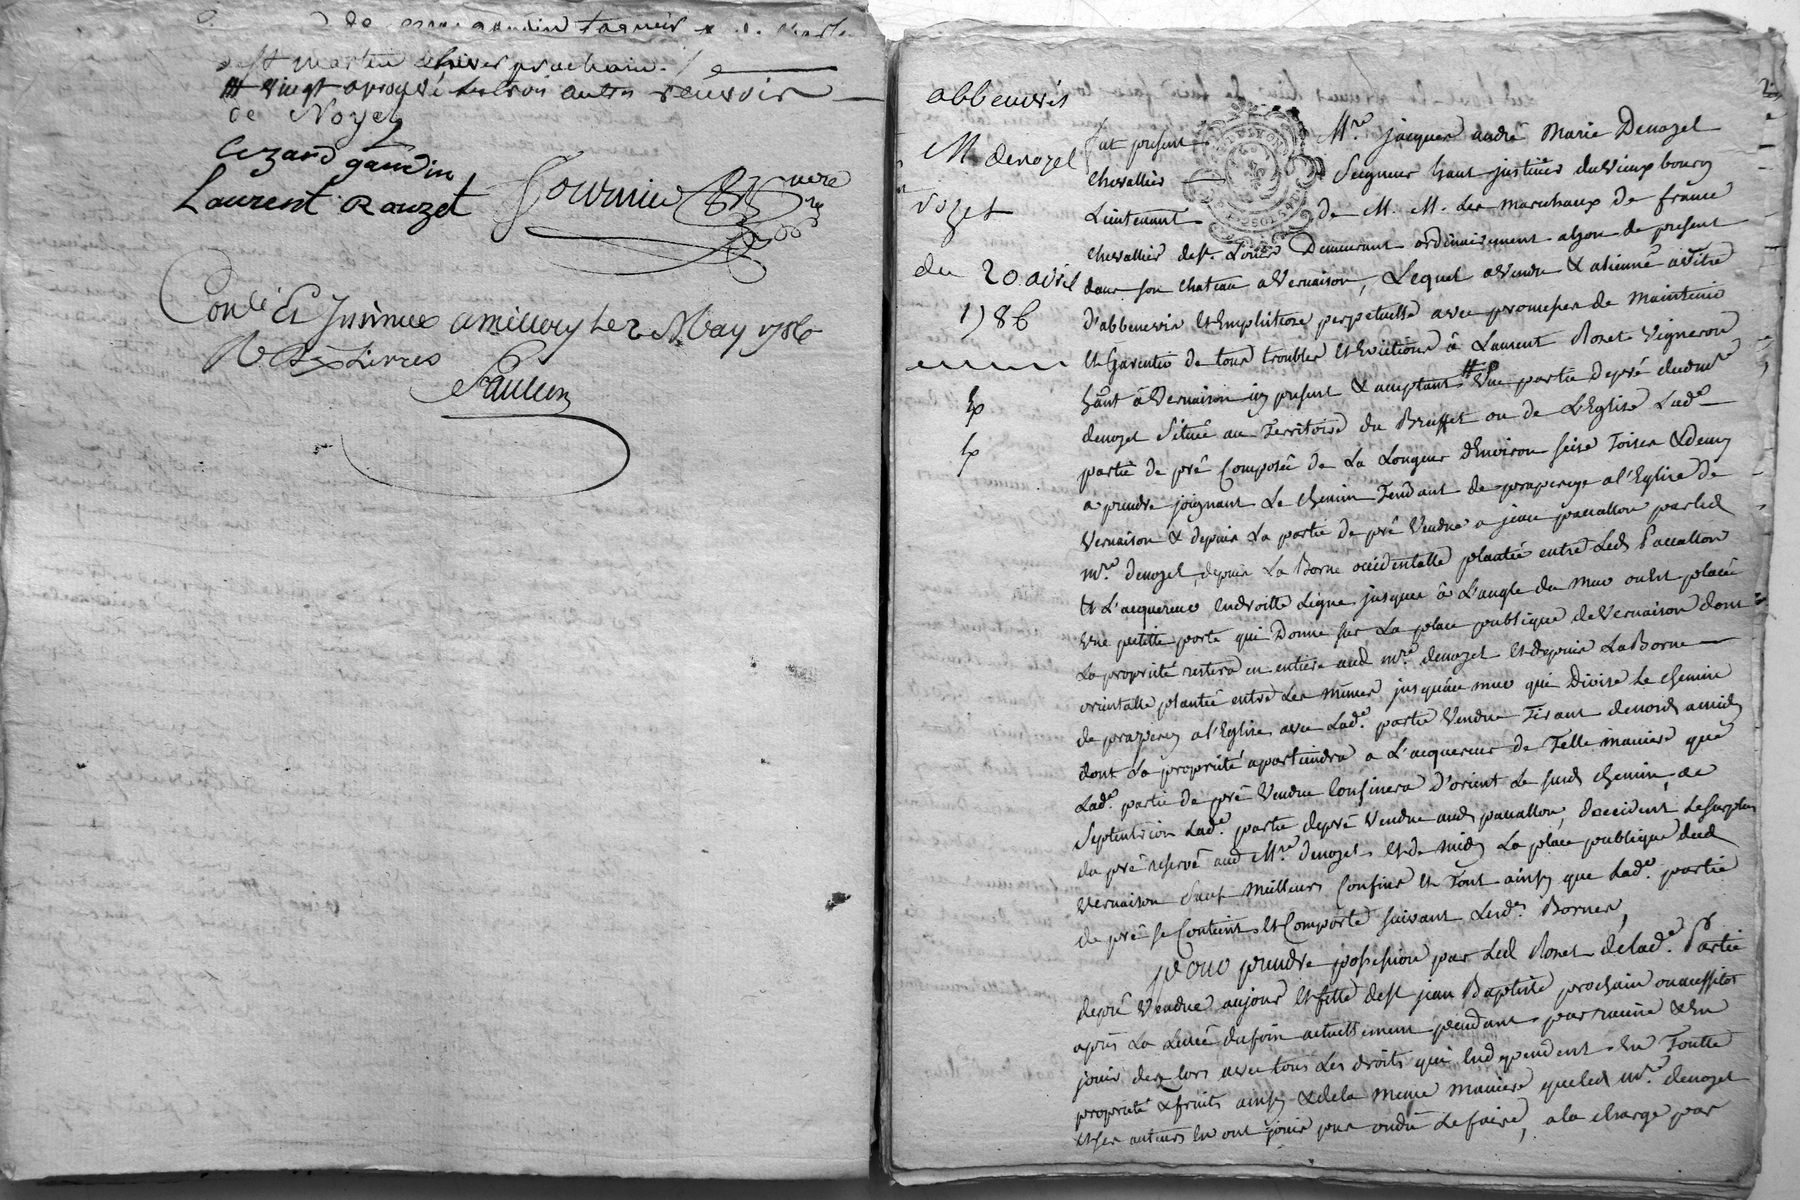 de st martin d'hiver prochain ./.
vingt aprouvé les trois autres renvois
de Noyel
Cezard gaudin
Laurent Rouzet
fournier
Conlé Et Insinué a millery Le 2 May 1786
Livres
2
abbenevis
M denozel
rozet
du 20 avril
1786
fut present Mre jacques andré Marie Denozel
chevallier Seigneur haut justicier du vieux bourg
Lieutenant de M. M. Les marechaux de france
chevallier de st. Louis Demeurant ordinairement alyon de present
dans son chateau a Vernaison, Lequel a vendu & alienné a titre
d'abbenevis et Emphiteose perpetuelle avec promesses de maintenir
et Garentir de tous troubles et Evictions â Laurent Rozet Vigneron
hânt à Vernaison icy present & aceptant # Une partie de pré dud mre
denozel Située au Territoire du Bruffet ou de L'Eglise Lade
partie de pré Composée de La Longeur d'Environ seise Toises & demy
a prendre joignant Le chemin Tendant de prapercey a l'Eglise de
Vernaison & depuis La partie de pré Vendue a jean pavallon par led
mre. denozel, depuis La Borne occidentalle plantée entre Led Pavallon
Et L'acquereur en droitte Ligne jusques â L'angle du mur ou Est placée
une petitte porte qui Donne sur La place publique de Vernaison dont
La propriété restera en entier aud mre. denozel et depuis La Borne
orientalle plantée entre Les mêmes jusqu'au mur qui Divise Le chemin
de prapercey a l'Eglise avec Lade. partie Vendue Tirant de nord a midy
dont La propriété apartiendra a L'acquereur de Telle maniere que
Lade. partie de pré Vendue Confinera D'orient Le susd chemin, de
Septentrion Lade. partie de pré Vendue aud pavallon, d'occident, Le surplus
du pré reservé aud Mre. denozel et de midy La place publique dud
Vernaison Sauf meilleurs Confins et Tout ainsy que Lade. partie
de pré se Contient et Comporte suivant Lesdes. Bornes,
Pour prendre possession par Led Rozet de lade. Partie
de pré Vendue au jour et fette de st jean Baptiste prochain ou aussitôt
après La Levée du foin actuellement pendant par racine & En
jouir des lors avec tous Les droits qui En dependent En Toutte
propriété & fruits ainsy & de la même maniere que led mre. denozel
et ses auteurs En ont jouir pu ou dû Le faire, a la charge par